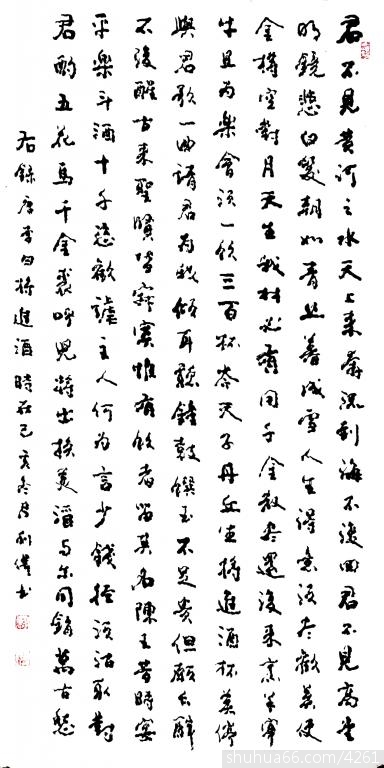 君不見黄河之水天上来奔流到海不復回君不見高堂
明鏡悲白髮朝如青丝暮成雪人生得意须尽歡莫使
金樽空對月天生我材必有用千金散尽還復来烹羊宰
牛且为樂會须一飲三百杯岑夫子丹丘生将進酒杯莫停
與君歌一曲請君为我倾耳聽鐘鼓饌玉不足貴但願长醉
不復醒古来聖賢皆寂寞惟有飲者留其名陳王昔時宴
平樂斗酒十千恣歡謔主人何为言少錢徑须沽取對
君酌五花馬千金裘呼兒将出换美酒与尔同銷萬古愁
右錄唐李白将進酒時在己亥冬月刘书
shuhua66.com/4261